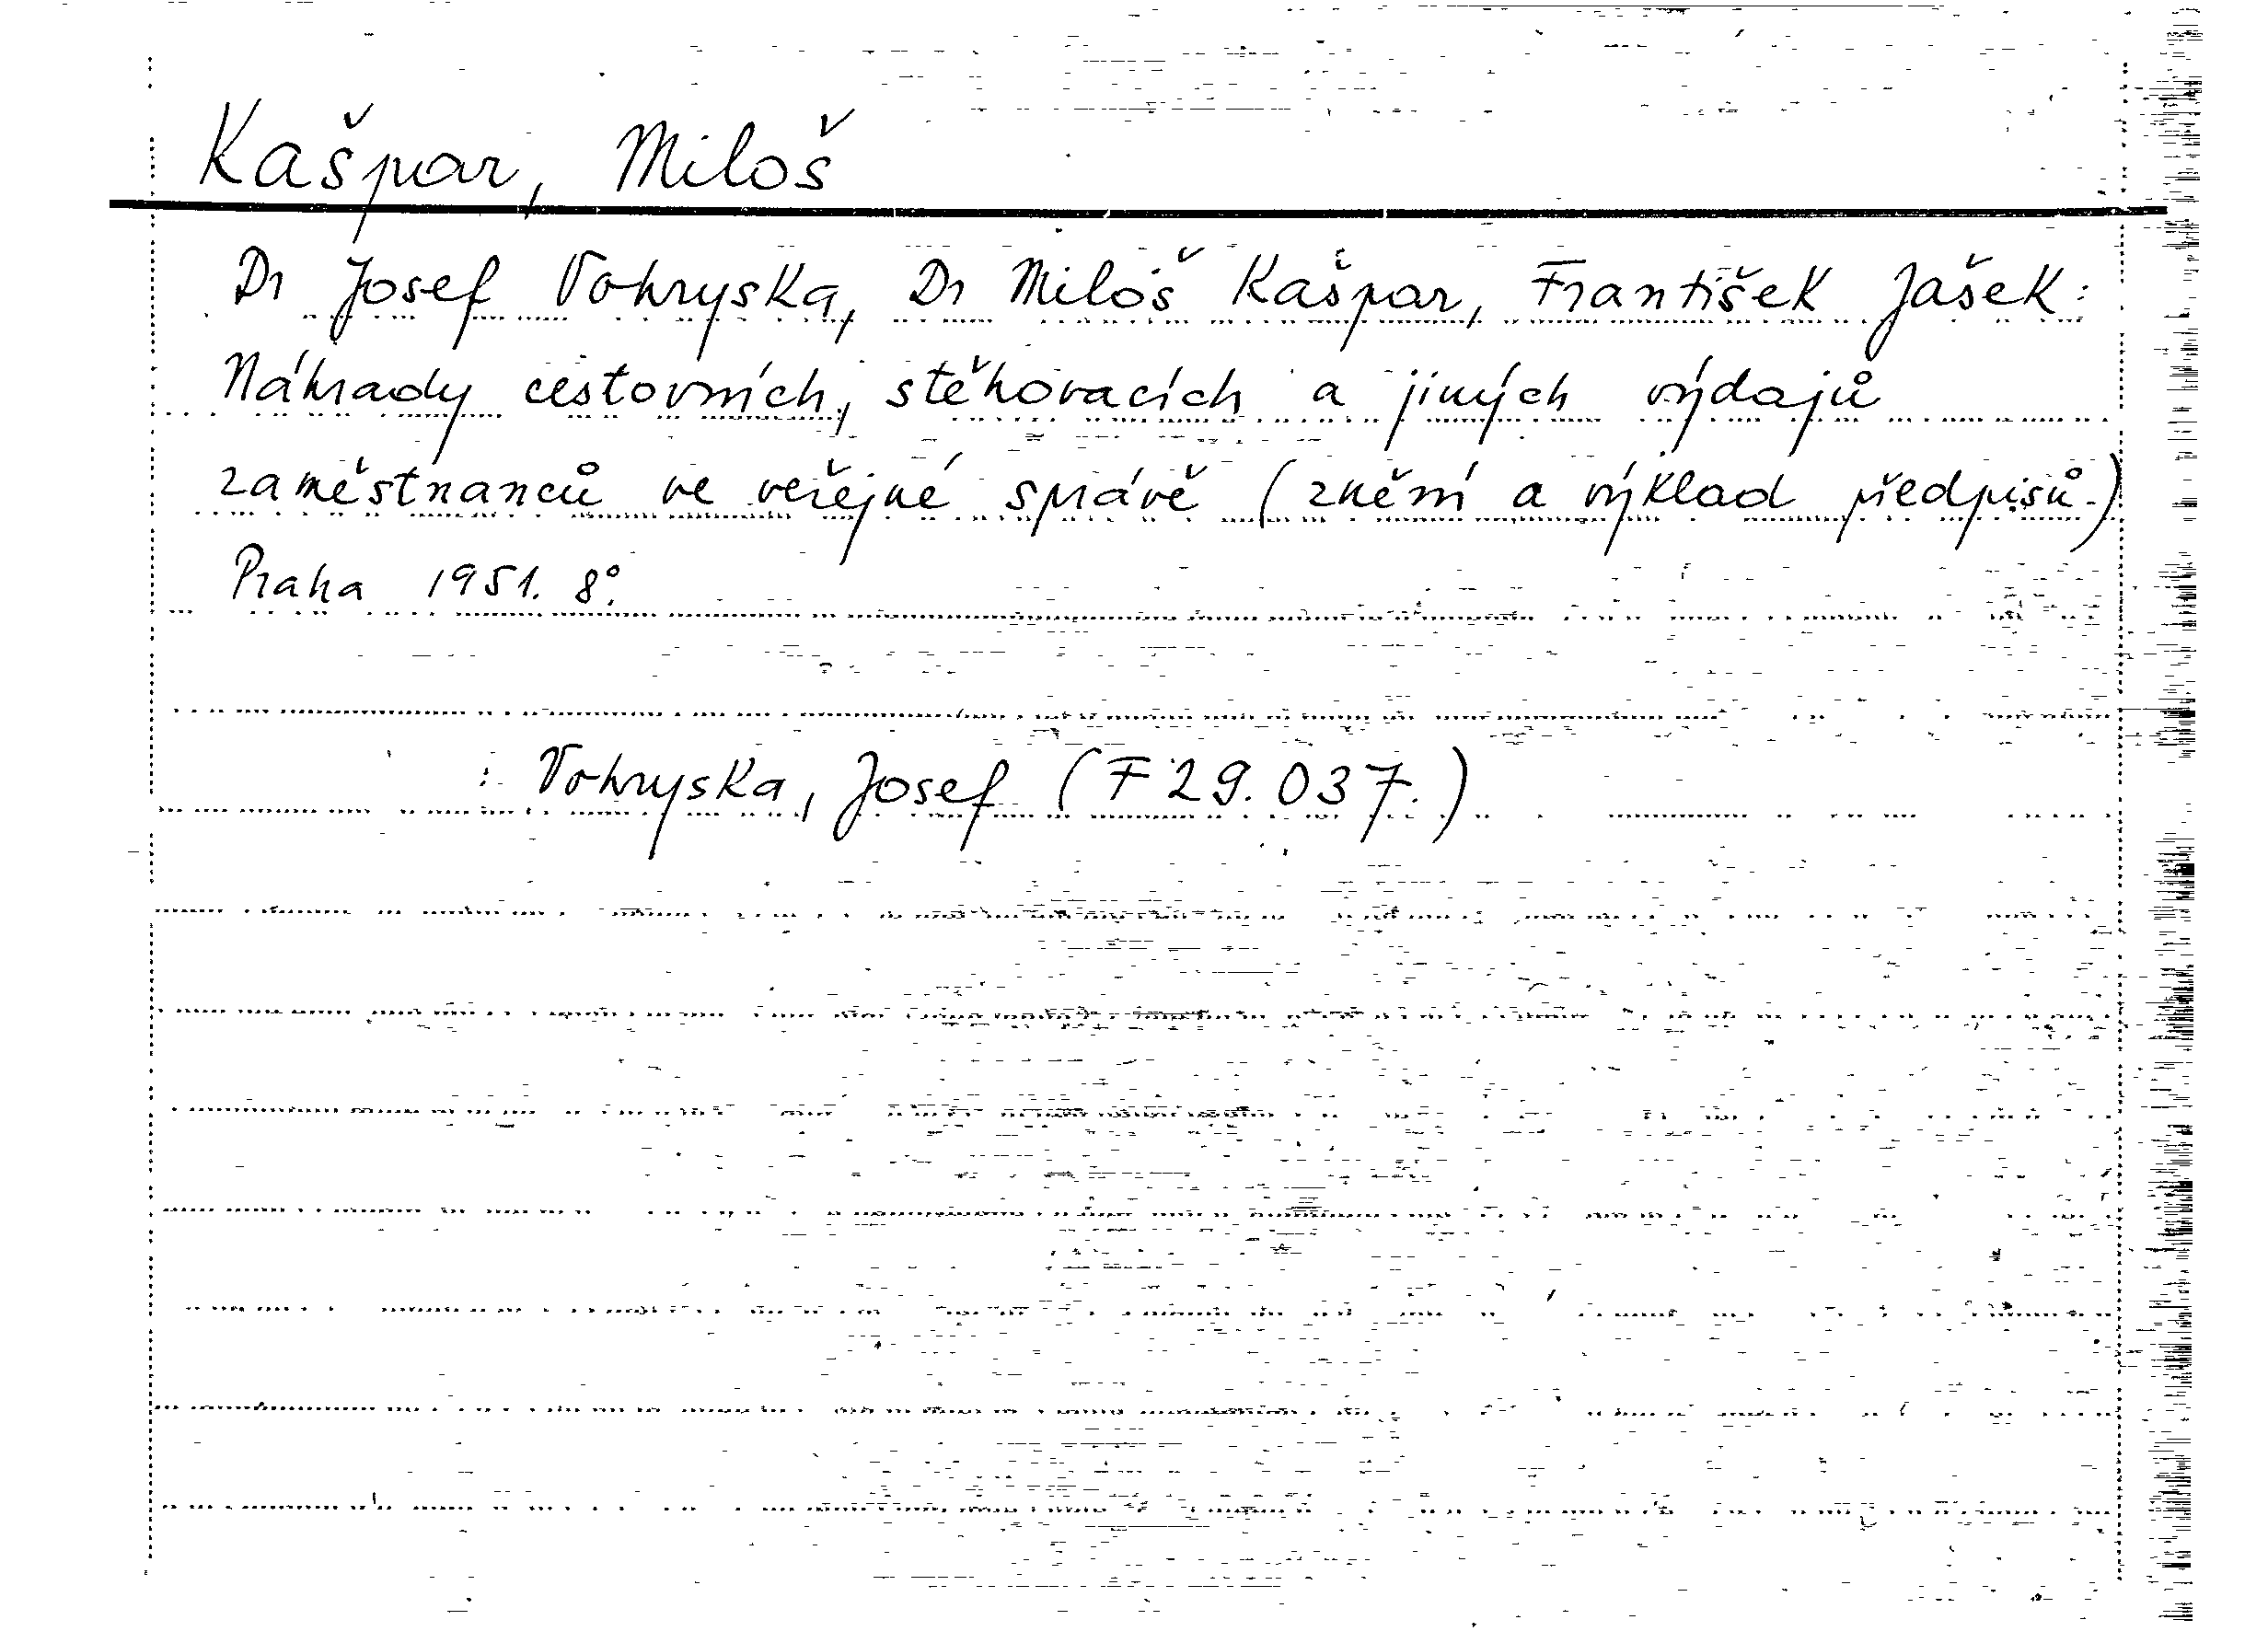 Kašpar, Miloš
Dr Josef Vohryska, Dr Miloš Kašpar, František Jašek:
Náhrady cestovních, stěhovacích a jiných výdajů
zaměstnanců ve veřejné správě (znění a výklad předpisů.)
Praha 1951. 8°.
: Vohryska, Josef (F 29.037.)